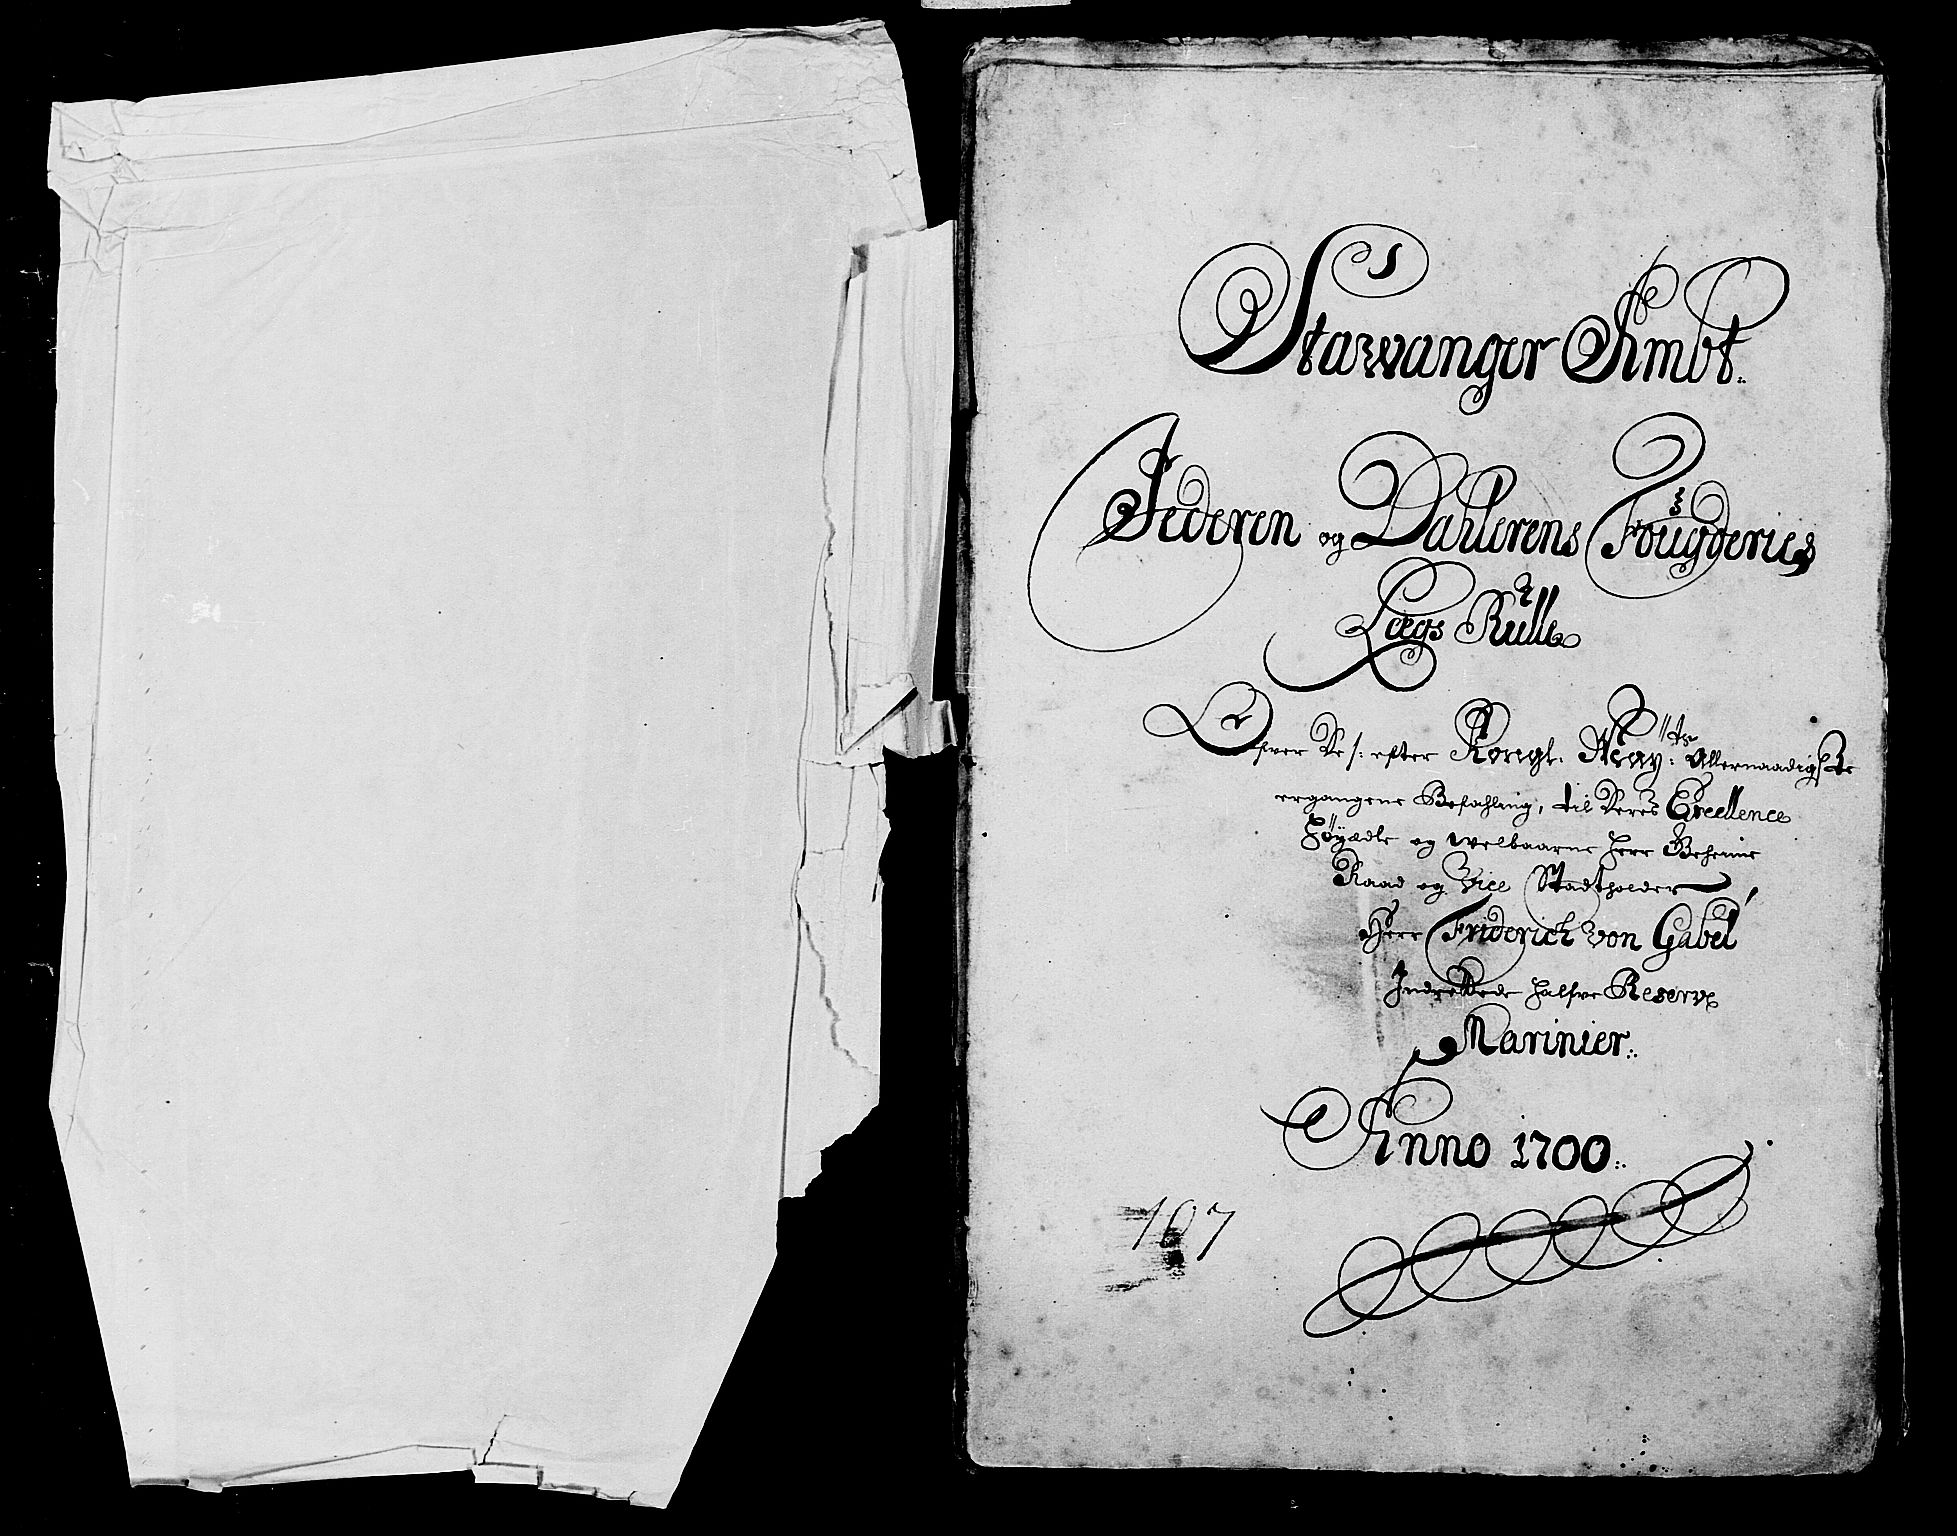 Stawanger Ambt:.
Jederen og Dahlerens Fougderies
Lægs Rulle
Ofver De /: efter Kongl. May:ts Allernaadigste
ergangene Befahling, til Deres Excellence
Høyædle og welbaarne Herr Geheime
Raad og Vice Stadtholder
Herr Friderich von Gabel
Indrettede halfve Reserve
Marinier:.
Anno 1700:.
107